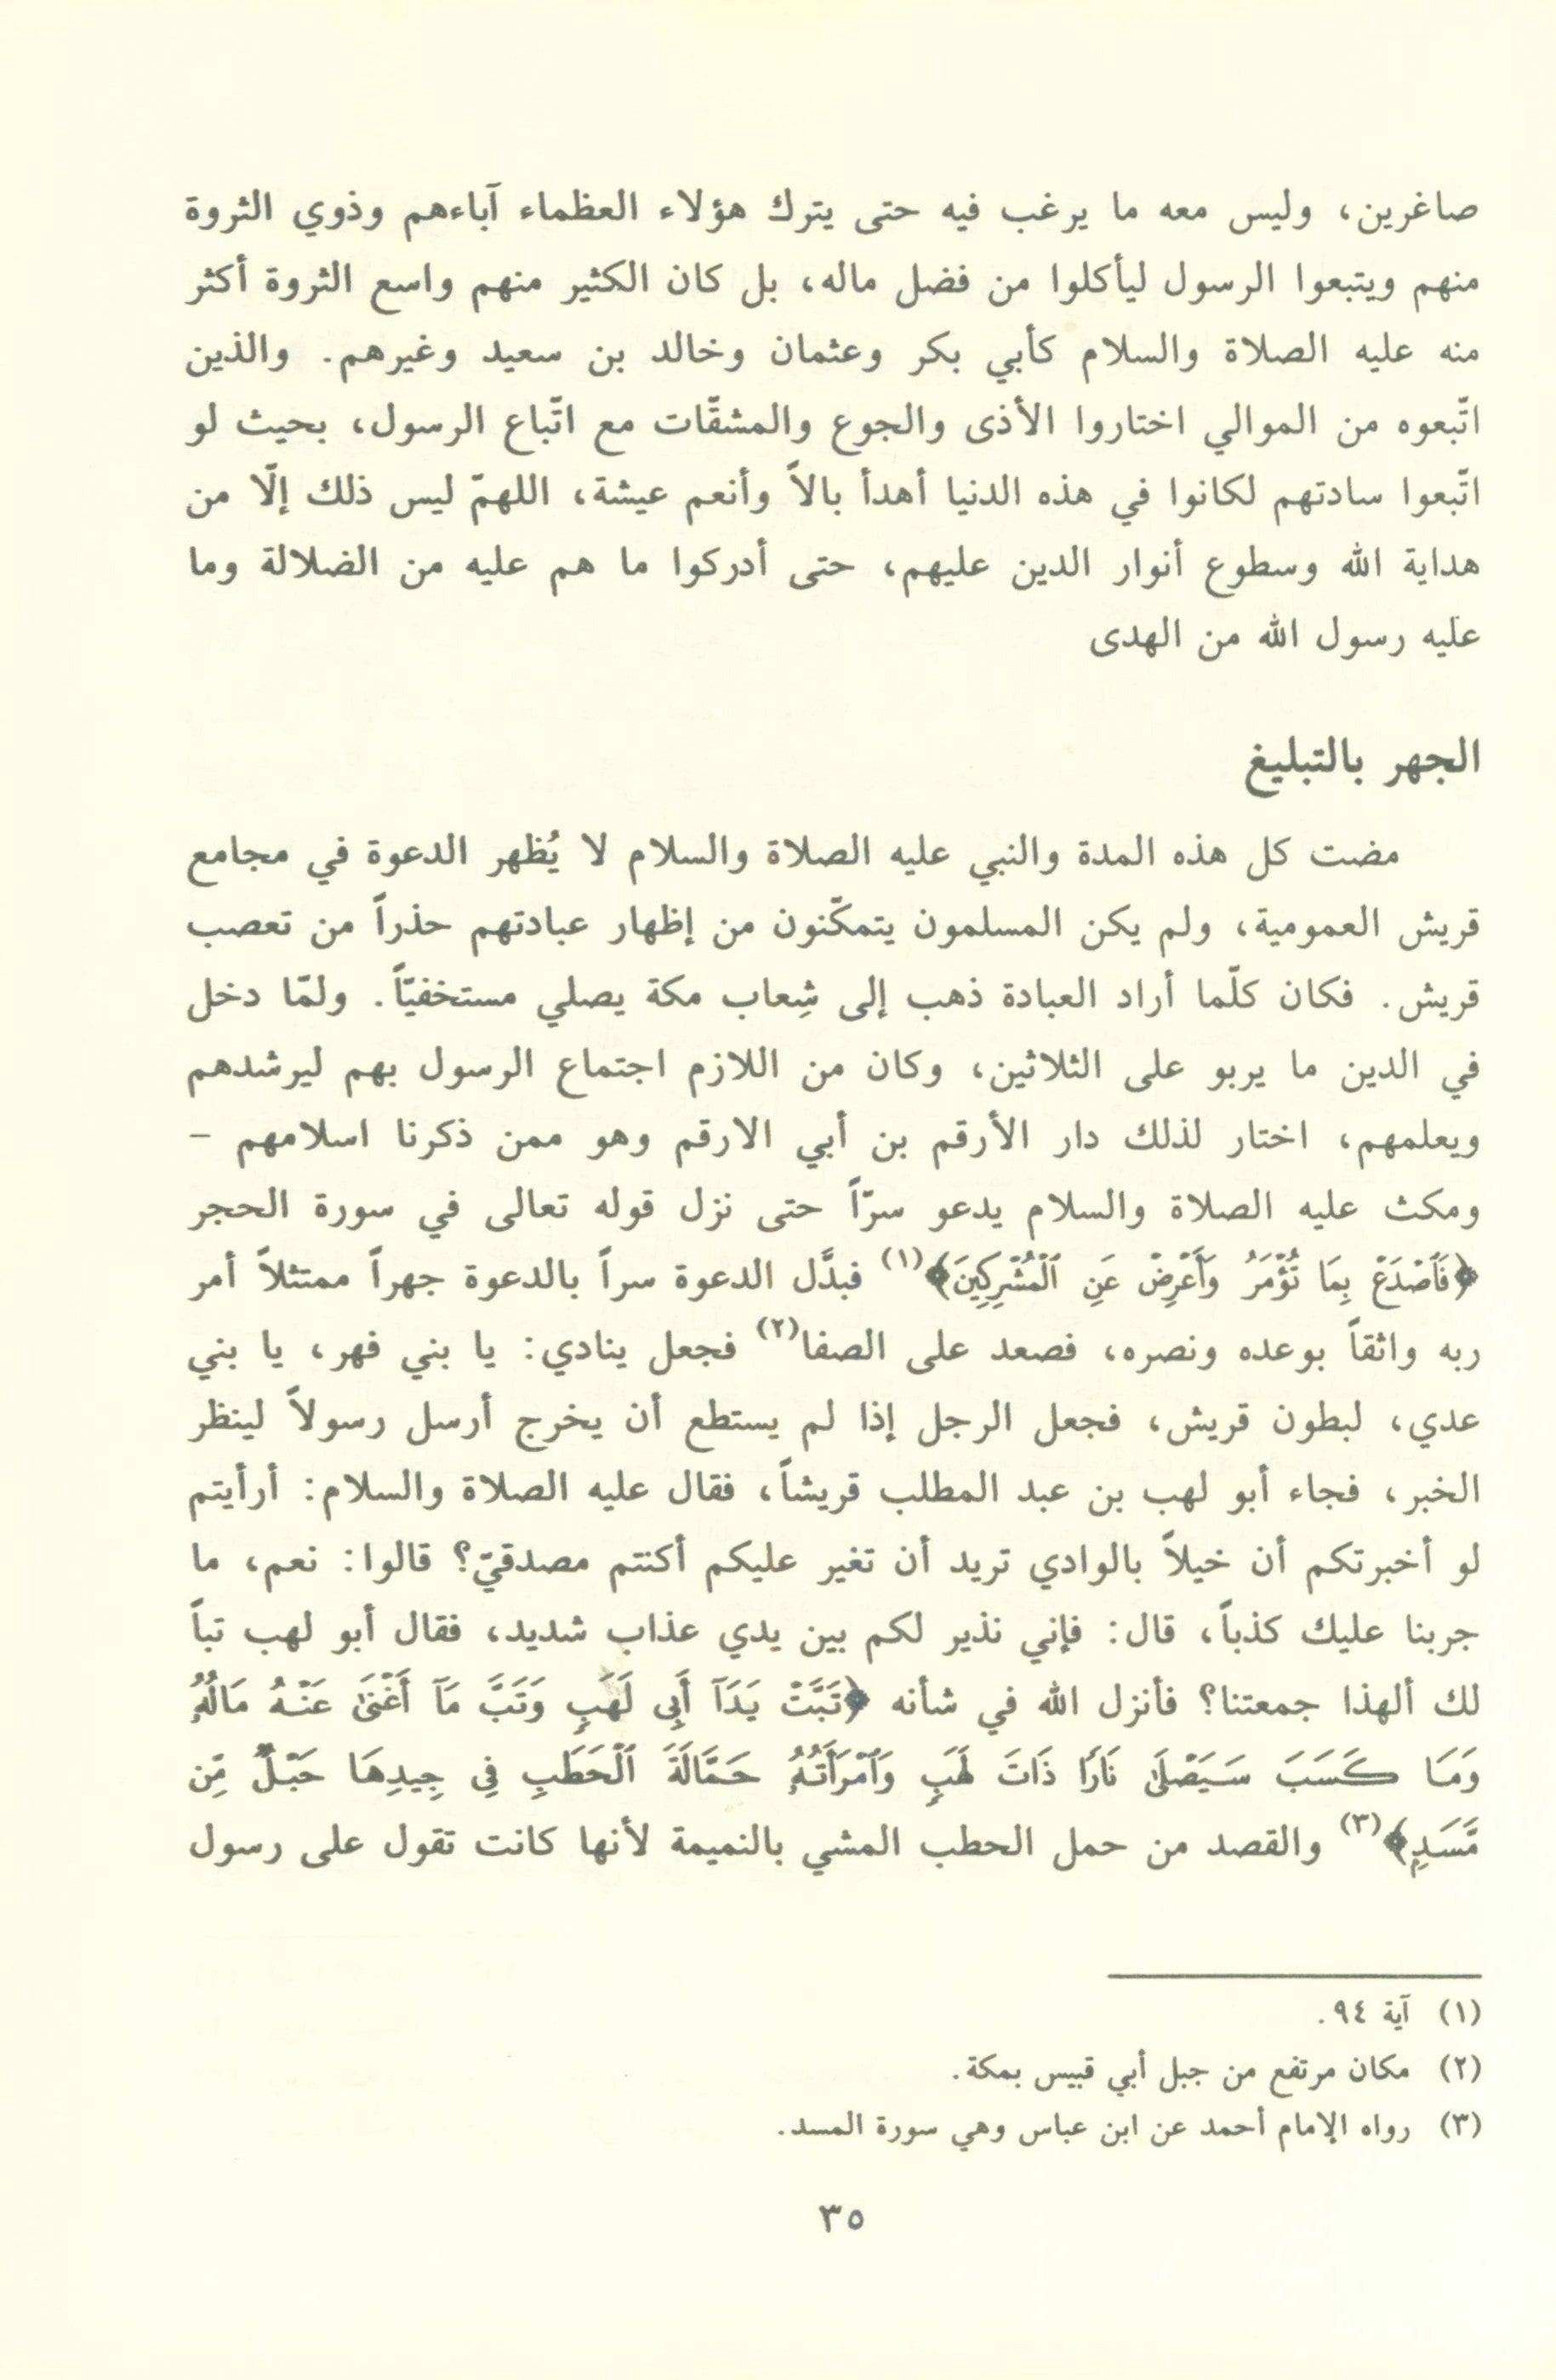 صاغرين، وليس معه ما يرغب فيه حتى يترك هؤلاء العظماء آباءهم وذوي الثروة
منهم ويتبعوا الرسول ليأكلوا من فضل ماله، بل كان الكثير منهم واسع الثروة أكثر
منه عليه الصلاة والسلام كأبي بكر وعثمان وخالد بن سعيد وغيرهم. والذين
اتّبعوه من الموالي اختاروا الأذى والجوع والمشقّات مع اتّباع الرسول، بحيث لو
اتّبعوا سادتهم لكانوا في هذه الدنيا أهدأ بالاً وأنعم عيشة، اللهمّ ليس ذلك إلّا من
هداية الله وسطوع أنوار الدين عليهم، حتى أدركوا ما هم عليه من الضلالة وما
عليه رسول الله من الهدى
الجهر بالتبليغ
مضت كل هذه المدة والنبي عليه الصلاة والسلام لا يُظهر الدعوة في مجامع
قريش العمومية، ولم يكن المسلمون يتمكّنون من إظهار عبادتهم حذراً من تعصب
قريش. فكان كلّما أراد العبادة ذهب إلى شِعاب مكة يصلي مستخفيّاً. ولمّا دخل
في الدين ما يربو على الثلاثين، وكان من اللازم اجتماع الرسول بهم ليرشدهم
ويعلمهم، اختار لذلك دار الأرقم بن أبي الارقم وهو ممن ذكرنا اسلامهم –
ومكث عليه الصلاة والسلام يدعو سرّاً حتى نزل قوله تعالى في سورة الحجر
﴿فَٱصْدَعْ بِمَا تُؤْمَرُ وَأَعْرِضْ عَنِ ٱلْمُشْرِكِينَ﴾(١) فبدَّل الدعوة سراً بالدعوة جهراً ممتثلاً أمر
ربه واثقاً بوعده ونصره، فصعد على الصفا(٢) فجعل ينادي: يا بني فهر، يا بني
عدي، لبطون قريش، فجعل الرجل إذا لم يستطع أن يخرج أرسل رسولاً لينظر
الخبر، فجاء أبو لهب بن عبد المطلب قريشاً، فقال عليه الصلاة والسلام: أرأيتم
لو أخبرتكم أن خيلاً بالوادي تريد أن تغير عليكم أكنتم مصدقيّ؟ قالوا: نعم، ما
جربنا عليك كذباً، قال: فإني نذير لكم بين يدي عذاب شديد، فقال أبو لهب تباً
لك ألهذا جمعتنا؟ فأنزل الله في شأنه ﴿تَبَّتْ يَدَآ أَبِى لَهَبٍ وَتَبَّ مَآ أَغْنَىٰ عَنْهُ مَالُهُۥ
وَمَا كَسَبَ سَيَصْلَىٰ نَارًا ذَاتَ لَهَبٍ وَٱمْرَأَتُهُۥ حَمَّالَةَ ٱلْحَطَبِ فِى جِيدِهَا حَبْلٌ مِّن
مَّسَدٍۭ﴾(٣) والقصد من حمل الحطب المشي بالنميمة لأنها كانت تقول على رسول
(١) آية ٩٤.
(٢) مكان مرتفع من جبل أبي قبيس بمكة.
(٣) رواه الإمام أحمد عن ابن عباس وهي سورة المسد.
٣٥